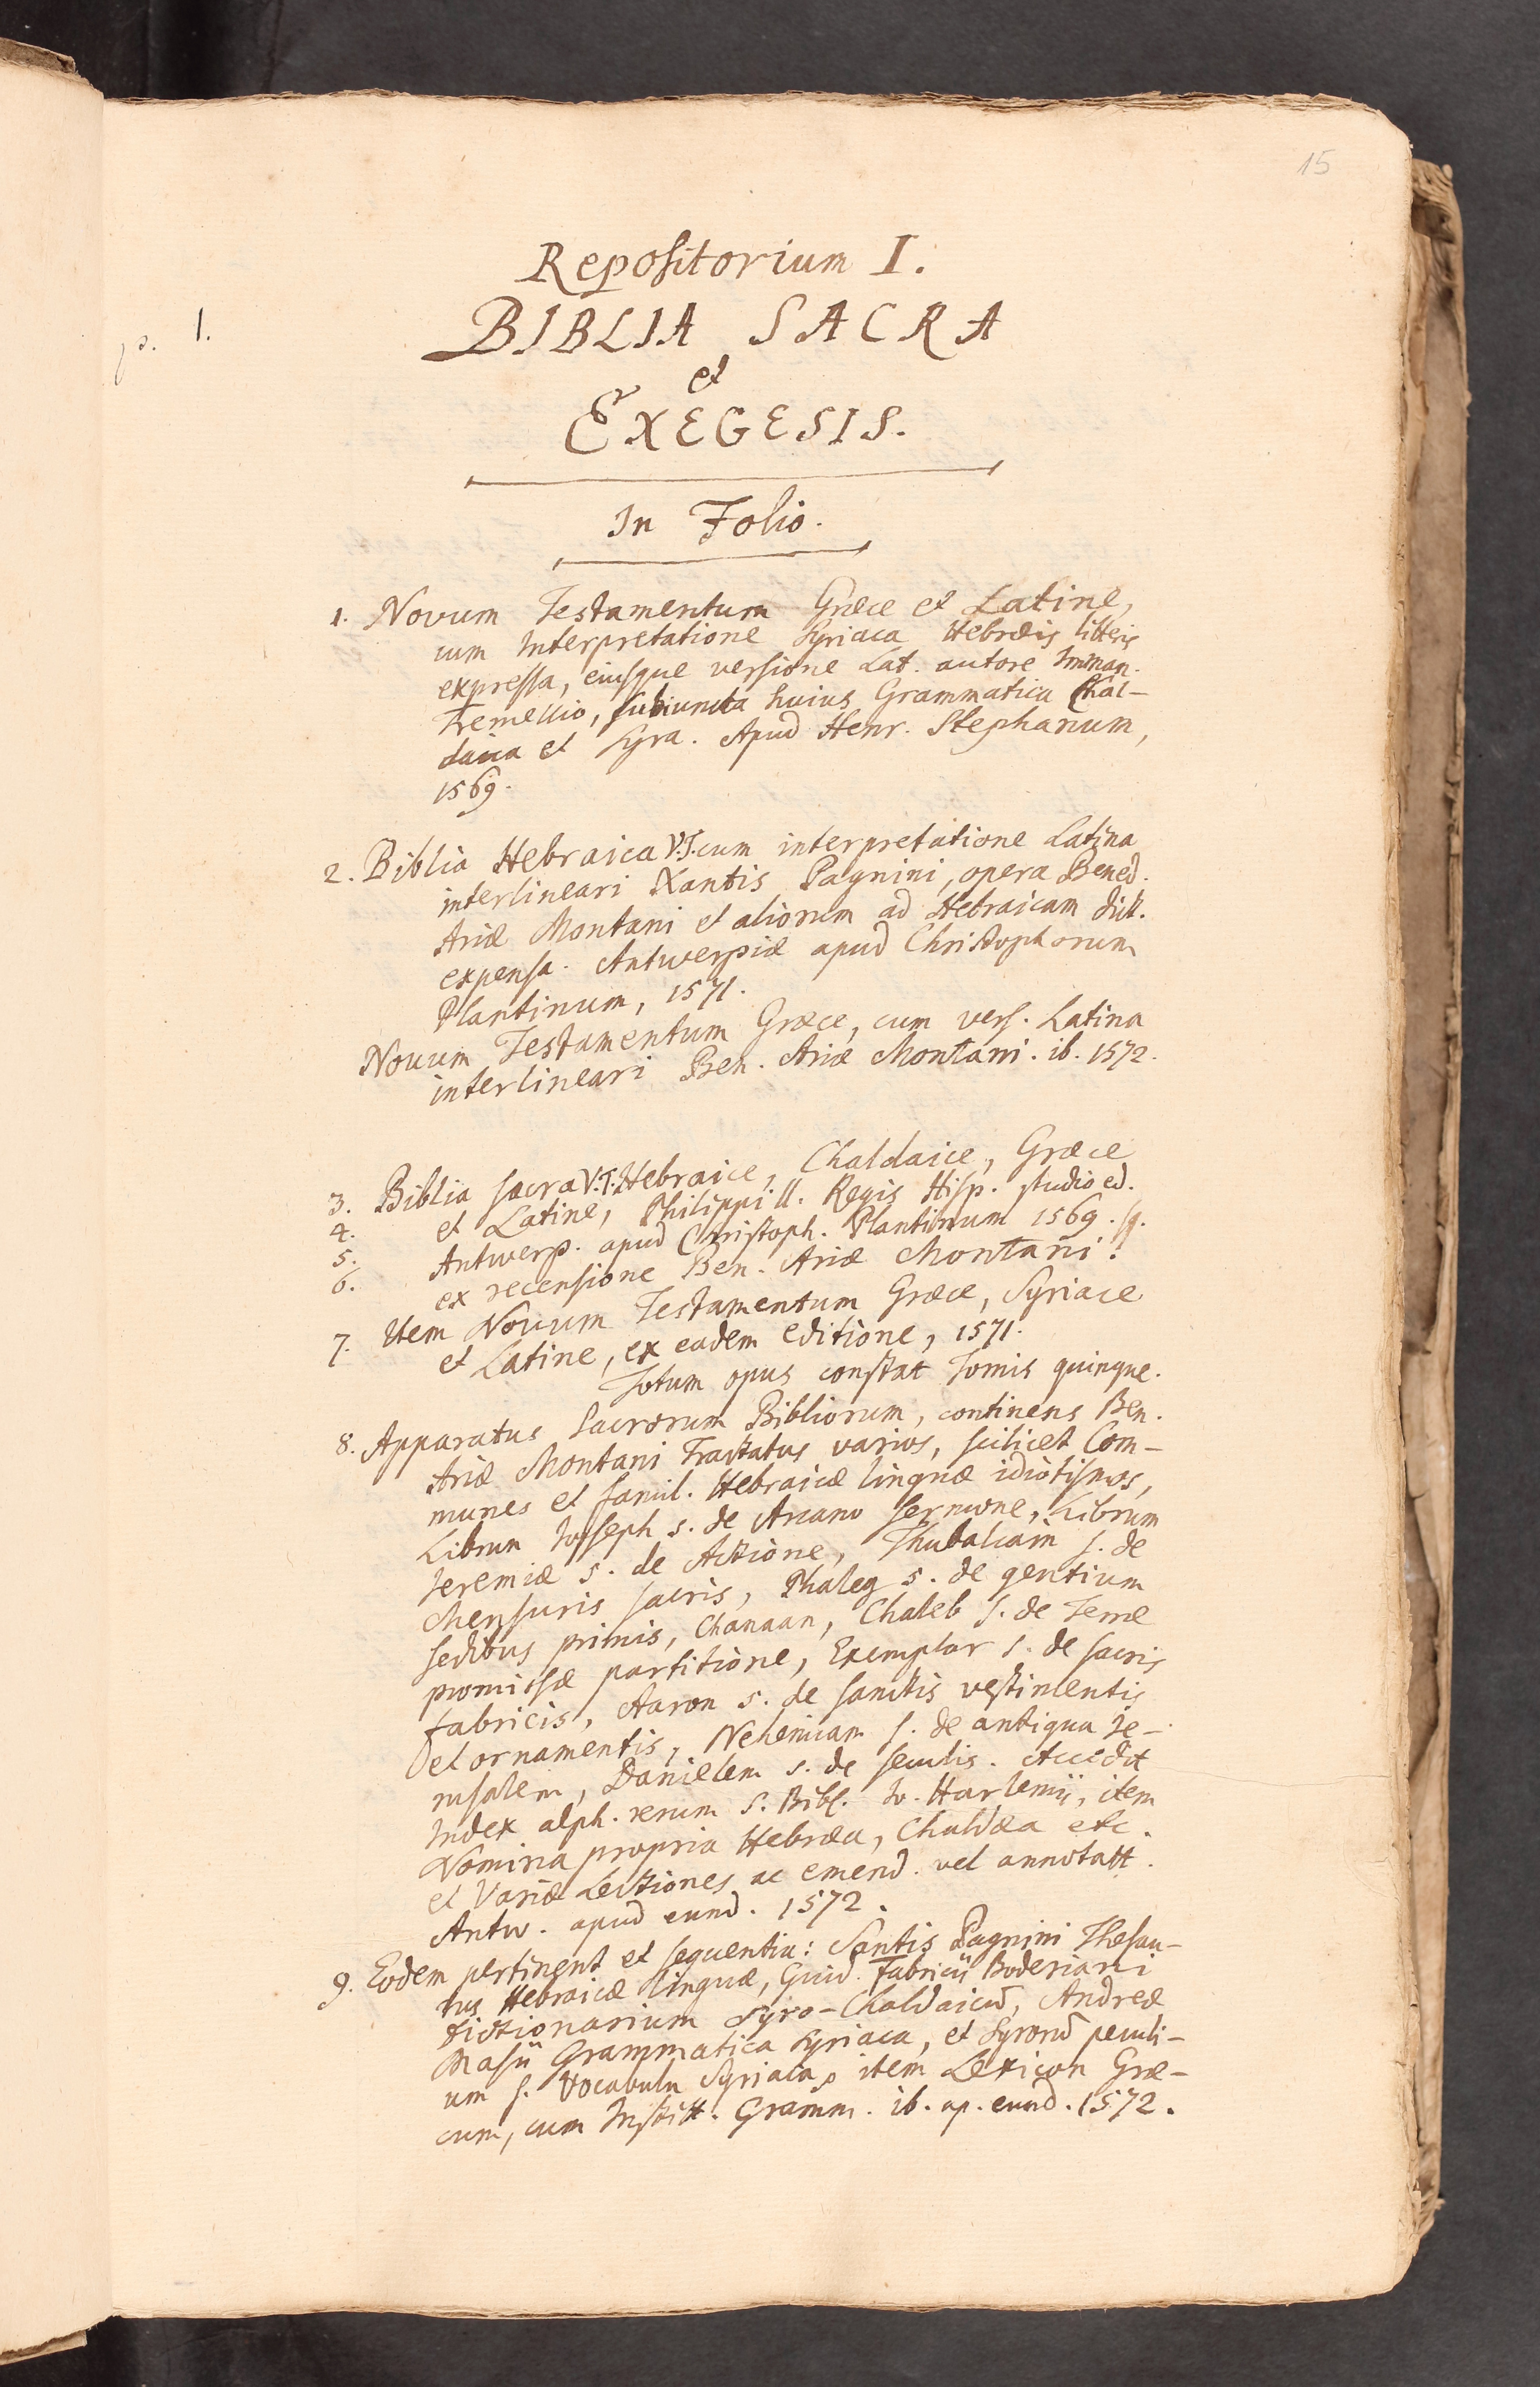 15
p. 1.
Repositorium I.
BIBLIA SACRA
et
EXEGESIS.
In Folio.
1. Novum Testamentum Græce et Latine,
cum Interpretatione Syriaca Hebræis litteris
expressa, eiusque versione Lat. autore Imman.
Tremellio, subiuncta huius Grammatica Chal-
daica et Syra. Apud Henr. Stephanum,
1569.
2. Biblia Hebraica V.T. cum interpretatione Latina
interlineari Xantis Pagnini, opera Bened.
Ariæ Montani et aliorum ad Hebraicam dict.
expensa. Antwerpiæ apud Christophorum
Plantinum, 1571.
Novum Testamentum Græce, cum vers. Latina
interlineari Ben. Ariæ Montani. ib. 1572.
3. Biblia sacra V.T. Hebraice, Chaldaice, Græce
4. et Latine, Philippi II. Regis Hisp. studio ed.
5. Antwerp. apud Christoph. Plantinum 1569. sq.
6. ex recensione Ben. Ariæ Montani.
7. Item Novum Testamentum Græce, Syriace
et Latine, ex eadem editione, 1571.
Totum opus constat Tomis quinque.
8. Apparatus Sacrorum Bibliorum, continens Ben.
Ariæ Montani Tractatus varios, scilicet Com-
munes et famil. Hebraicæ linguæ idiotismos,
Librum Joseph s. de Arcano sermone, Librum
Jeremiæ s. de Actione, Thubalcain s. de
Mensuris sacris, Phaleg s. de gentium
sedibus primis, Chanaan, Chaleb s. de Terræ
promissæ partitione, Exemplar s. de sacris
fabricis, Aaron s. de sanctis vestimentis
et ornamentis, Nehemiam s. de antiqua Je-
rusalem, Danielem s. de seculis. Accedit
Index alph. rerum S. Bibl. Jo. Harlemij, item
Nomina propria Hebræa, Chaldæa etc.
et Variæ Lectiones ac emend. vel annotatt.
Antw. apud eund. 1572.
9. Eodem pertinent et sequentia: Santis Pagnini Thesau-
rus Hebraicæ linguæ, Guid. Fabricij Boderiani
Dictionarium Syro-Chaldaicu̅, Andreæ
Masij Grammatica Syriaca, et Syroru̅ peculi-
um s. Vocabula Syriaca, item Lexicon Græ-
cum, cum Institt. Gramm. ib. ap. eund. 1572.